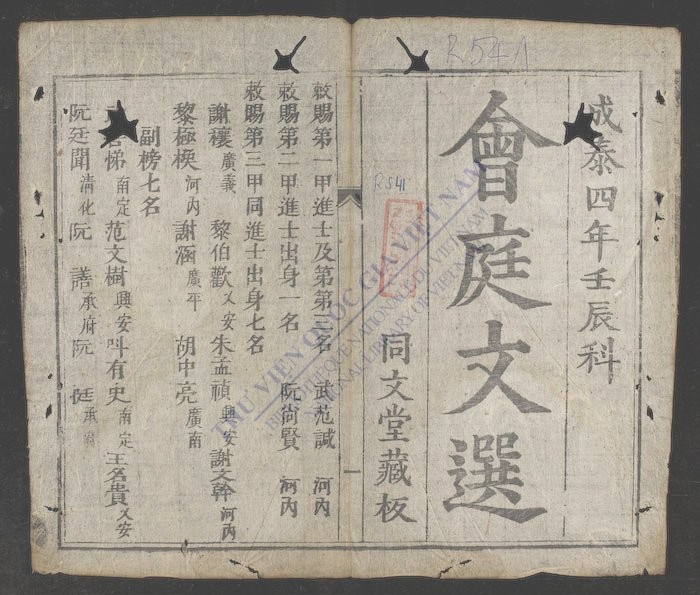 成泰四年壬辰科
會庭文選
同文堂藏板
R 541
R 541
THƯ VIỆN QUỐC GIA VIỆT NAM
BIBLIOTHÈQUE NATIONALE DU VIETNAM
NATIONAL LIBRARY OF VIETNAM
一
敕賜第一甲進士及第第三名 武范諴 河內
敕賜第二甲進士出身一名 阮尚賢 河內
敕賜第三甲同進士出身七名
謝穰 廣義 黎伯歡 乂安 朱孟禎 興安 謝文幹 河內
黎極楧 河內 謝涵 廣平 胡中亮 廣南
副榜七名
悌 南定 范文樹 興安 有史 南定 王名貴 乂安
阮廷聞 清化 阮 譱 承府 阮 承